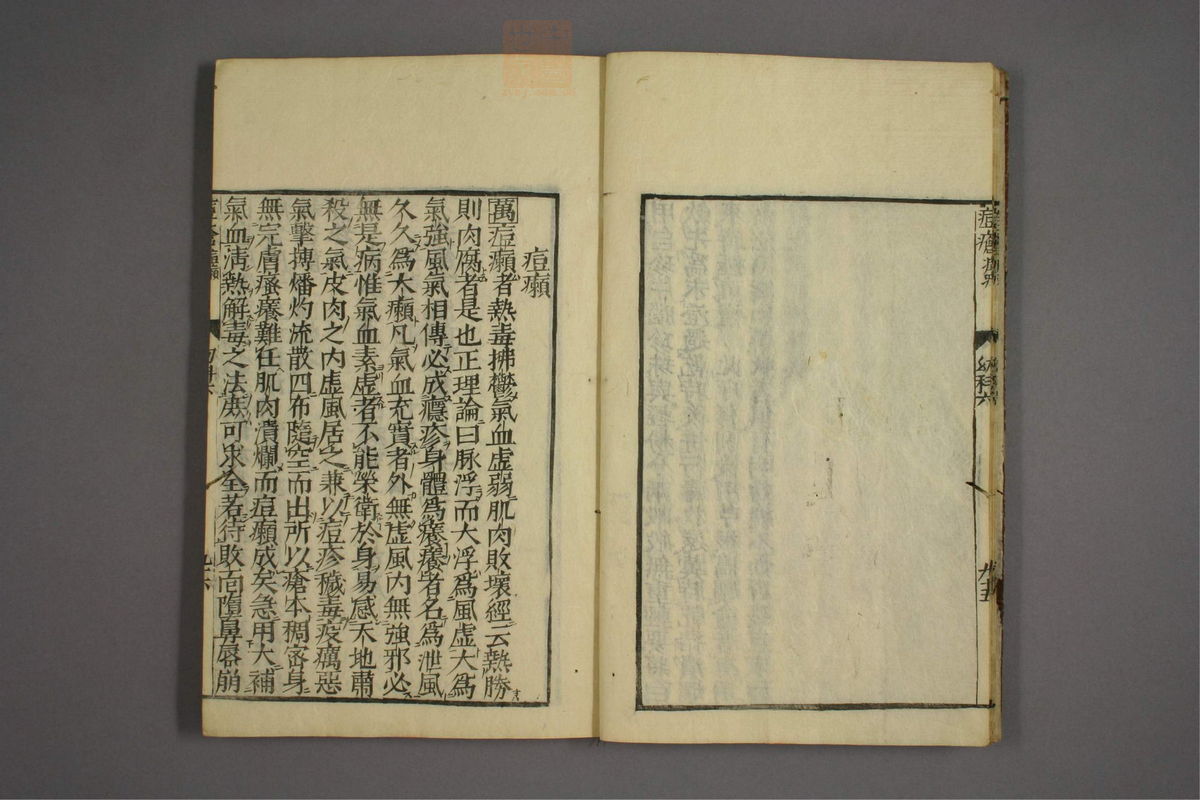 幼科六
九十五
痘癩
萬痘癩者熱毒拂鬱氣血虛弱肌肉敗壞經云熱勝
則肉腐者是也正理論曰脉浮而大浮爲風虛大爲
氣強風氣相傳必成癮疹身體爲癢癢者名爲泄風
久久爲大癩凡氣血充實者外無虛風内無強邪必
無是病惟氣血素虛者不能榮衛於身易感天地肅
殺之氣皮肉之内虛風居之兼以痘疹穢毒疫癘惡
氣擊搏燔灼流散四布隨空而出所以瘡本稠密身
無完膚瘙癢難任肌肉潰爛而痘癩成矣急用大補
氣血淸熱解毒之法庶可求全若待敗面墮鼻唇崩